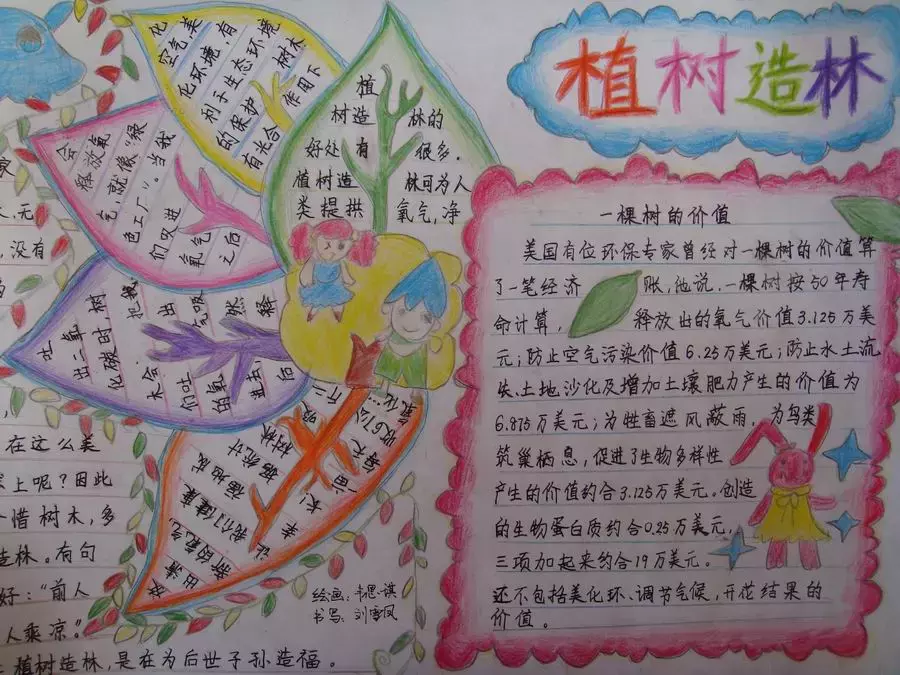 植树造林
一棵树的价值
美国有位环保专家曾经对一棵树的价值算
了一笔经济账,他说.一棵树按50年寿
命计算,释放出的氧气价值3.125万美
元;防止空气污染价值6.25万美元;防止水土流
失、土地沙化及增加土壤肥力产生的价值为
6.875万美元;为牲畜遮风蔽雨,为鸟类
筑巢栖息,促进了生物多样性
产生的价值约合3.125万美元。创造
的生物蛋白质约合0.25万美元,
三项加起来约合19万美元。
还不包括美化环、调节气候,开花结果的
价值。
植
树造林的
好处有很多.
植树造林可为人
类提拱氧气,净
化
空气,美
化环境,有
利于生态环境
的保护.树木
有光合作用下
会
释放氧
气,就像“绿
色工厂”。当我
们叹进氧气
之后
吐
出二氧
化碳时,树
木会把我
们吐出
的氧气吸
进去,然
后释
放
出清
新的氧气,
让我们健康
幸福地成
长!据统计
一亩树林
每天
家
无
,没有
在这么美
上呢?因此
惜树木,多
造林。有句
好:“前人
人乘凉。”
植树造林,是在为后世子孙造福。
绘画:韦思祺
书写:刘雪凤